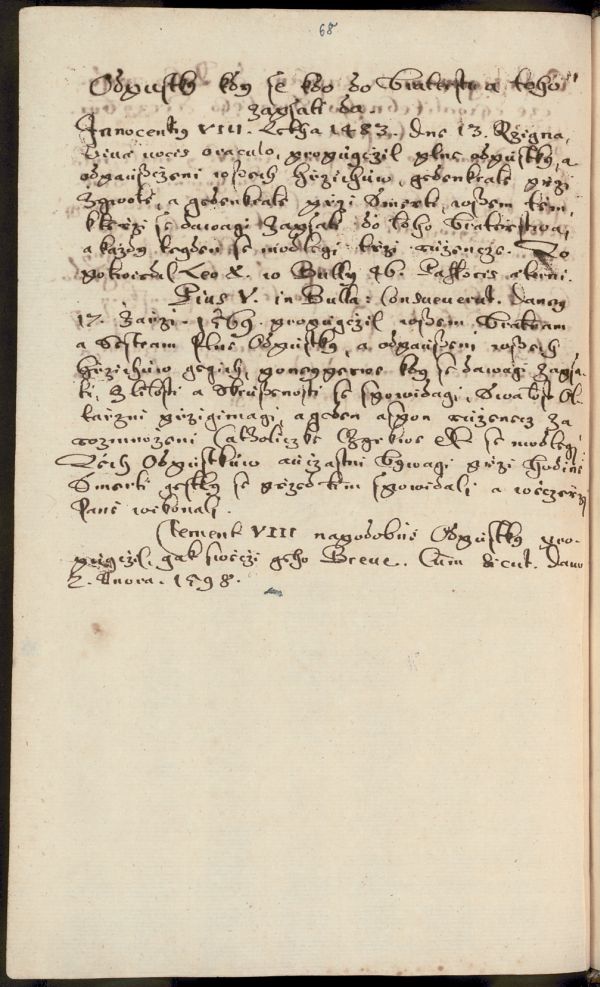 68
Odpustky kdy se kdo do Bratrstwa tohoto
zapsati da.
Innocentiꝰ VIII. Letha 1483. dne 13. Ržigna,
Viuæ uocis oraculo, propůgčžil plne odpustky, a
odpausstieni wssech hržichůw, gedenkrate pržy
Žywotě, a gedenkrate prži Smrti, wssem tiem,
kterži se dawagi zapsati do toho bratrstwa,
a každy tegden se modlegi trži ružencze. To
potwrdil Leo X. w Bully 46. Pastoris æterni.
Pius V. in Bulla: Consueuerūt. dany
17. Zarži. 1569. propůgčžil wssem bratram
a Sestram Plné Odpustky, a odpausstieni wssech
hržichůw gegich, ponayprwe kdy se dawagi zapsa-
ti, z litosti a skraussenosti se spowidagi, Swatost Ol-
tarzni pržigimagi, a geden aspon ruženecz za
rozmnoženi Catholiczke Czyrkwe etc. se modlegi
Tiech Odpustkůw auczastni bywagi prži hodině
Smerti gestly se przedtim spowidali a wečzerži
Paně wikonali.
Clement VIII nápodobně Odpustky pro-
půgčžil, gak swiedčzi geho Breue. Cum sicut. Dano
2. Unora. 1598.